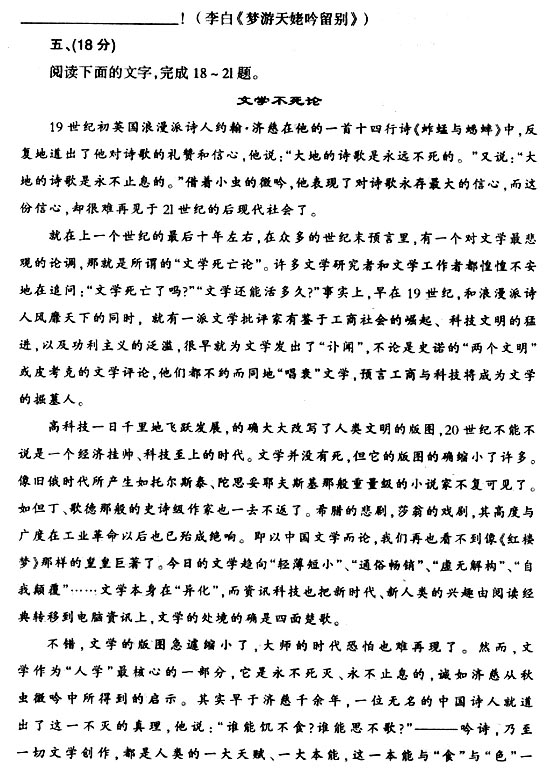 ____________________！（李白《梦游天姥吟留别》）
五、(18分)
阅读下面的文字,完成18~21题。
文学不死论
19世纪初英国浪漫派诗人约翰·济慈在他的一首十四行诗《蚱蜢与蟋蟀》中,反
复地道出了他对诗歌的礼赞和信心,他说:“大地的诗歌是永远不死的。”又说:“大
地的诗歌是永不止息的。”借着小虫的微吟,他表现了对诗歌永存最大的信心,而这
份信心,却很难再见于21世纪的后现代社会了。
就在上一个世纪的最后十年左右,在众多的世纪末预言里,有一个对文学最悲
观的论调,那就是所谓的“文学死亡论”。许多文学研究者和文学工作者都惶惶不安
地在追问:“文学死亡了吗?”“文学还能活多久?”事实上,早在19世纪,和浪漫派诗
人风靡天下的同时，就有一派文学批评家有鉴于工商社会的崛起、科技文明的猛
进,以及功利主义的泛滥,很早就为文学发出了“讣闻”,不论是史诺的“两个文明”
或皮考克的文学评论,他们都不约而同地“唱衰”文学,预言工商与科技将成为文学
的掘墓人。
高科技一日千里地飞跃发展,的确大大改写了人类文明的版图,20世纪不能不
说是一个经济挂帅、科技至上的时代。文学并没有死,但它的版图的确缩小了许多。
像旧俄时代所产生如托尔斯泰、陀思妥耶夫斯基那般重量级的小说家不复可见了。
如但丁、歌德那般的史诗级作家也一去不返了。希腊的悲剧,莎翁的戏剧,其高度与
广度在工业革命以后也已殆成绝响。即以中国文学而论,我们再也看不到像《红楼
梦》那样的皇皇巨著了。今日的文学趋向“轻薄短小”、“通俗畅销”、“虚无解构”、“自
我颠覆”……文学本身在“异化”,而资讯科技也把新时代、新人类的兴趣由阅读经
典转移到电脑资讯上,文学的处境的确是四面楚歌。
不错,文学的版图急遽缩小了,大师的时代恐怕也难再现了。然而,文
学作为“人学”最核心的一部分,它是永不死灭、永不止息的,诚如济慈从秋
虫微吟中所得到的启示。其实早于济慈千余年,一位无名的中国诗人就道
出了这一不灭的真理,他说:“谁能饥不食?谁能思不歌?”———吟诗,乃至
一切文学创作,都是人类的一大天赋、一大本能,这一本能与“食”与“色”一